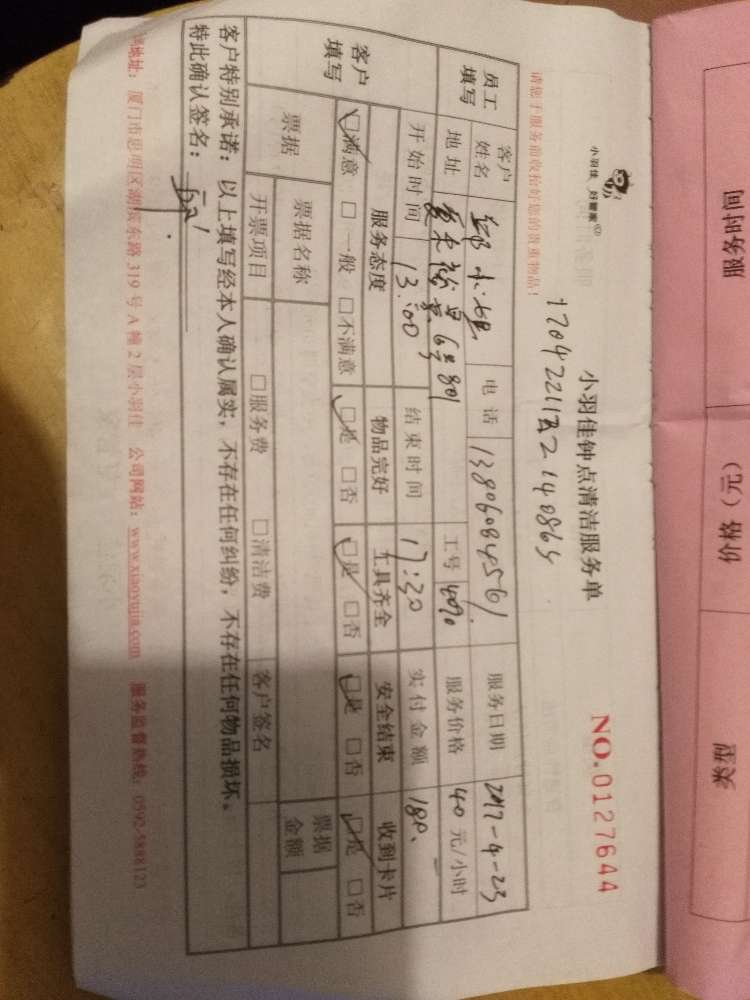 服务时间
价格（元）
类型
小羽佳 好管家®
小羽佳钟点清洁服务单
NO.0127644
请您于服务前收拾好您的贵重物品！
员工填写
客户姓名
电话 13806084561
服务日期 2017-4-23
地址
6号801
工号
服务价格 40元/小时
开始时间 13:00
结束时间 17:30
实付金额 180
客户填写
服务态度 物品完好 工具齐全 安全结束 收到卡片
☑满意 □一般 □不满意 ☑是 □否 ☑是 □否 ☑是 □否 ☑是 □否
票据
票据名称
票据金额
开票项目 □服务费 □清洁费 客户签名
客户特别承诺：以上填写经本人确认属实，不存在任何纠纷，不存在任何物品损坏。
特此确认签名：
地址：厦门市思明区湖滨东路319号A幢2层小羽佳 公司网站：www.xiaoyujia.com 服务监督热线：0592-5888123